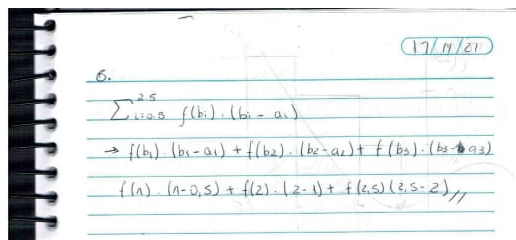 17/19/21
6.
∑ 2.5 i=0.5 f(bi) · (bi - ai)
→ f(b1) · (b1 - a1) + f(b2) · (b2 - a2) + f(b3) · (b3 - a3)
f(1) · (1 - 0,5) + f(2) · (2 - 1) + f(2,5) (2,5 - 2) //